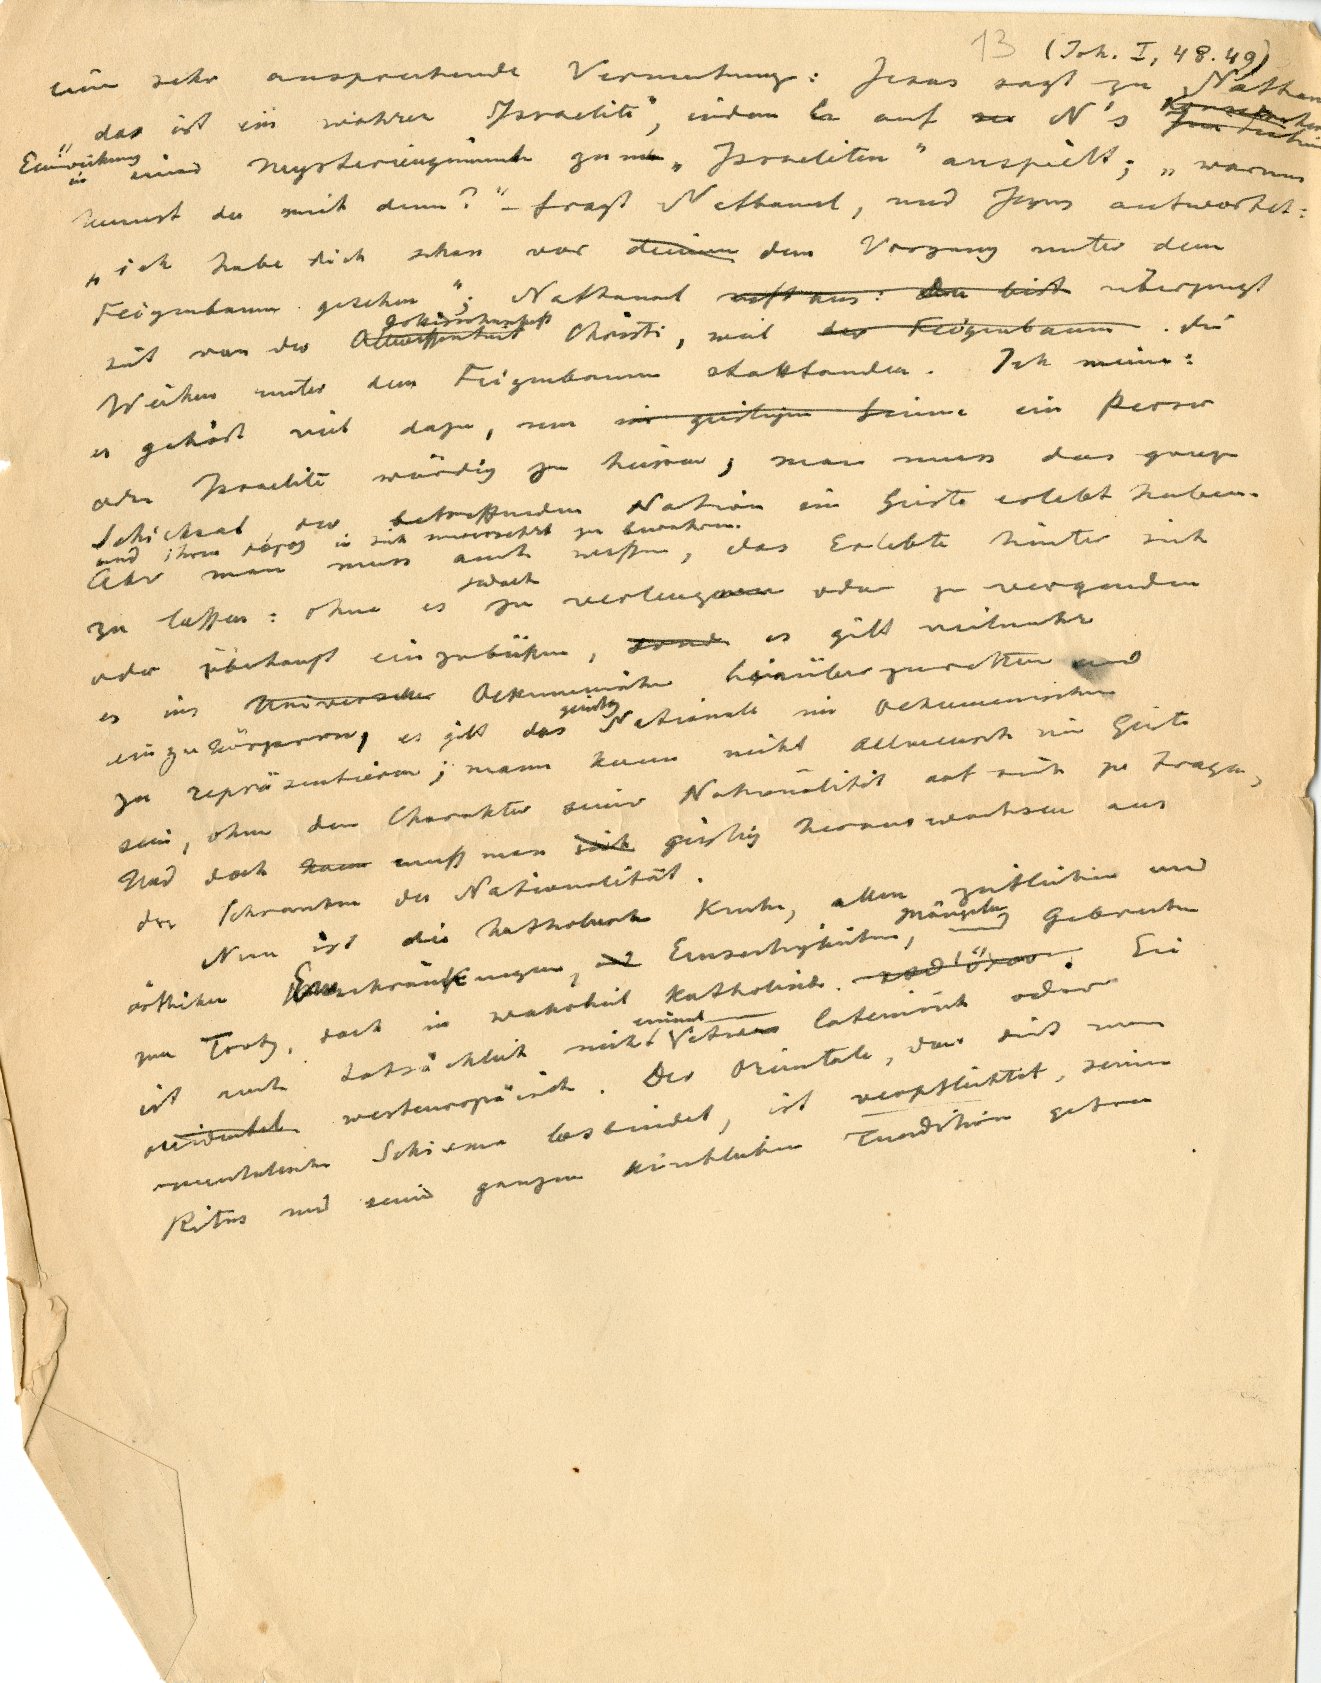 13 (Joh. I, 48.49)
eine sehr ansprechende Vermutung: Jesus sagt zu Nathan
„das ist ein wahrer Israelit“, indem Er auf N's
Einweihung in einer Mysteriengemeinde zum „Israeliten“ anspielt; „warum
kennst du mich denn?“ – fragt Nathanael, und Jesus antwortet:
„ich habe dich schon vor deinem dem Vorgang unter dem
Feigenbaum gesehen“; Nathanael ruft aus: Du bist überzeugt
sich von der Allwissenheit Christi, weil der Feigenbaum die
Weihen unter dem Feigenbaum stattfanden. Ich meine:
es gehört viel dazu, um im geistigen Sinne ein Perser
oder Israelite würdig zu heissen; man muss das ganze
Schicksal der betreffenden Nation im Geiste erlebt haben
und ihren λόγος in sich unversehrt zu bewahren.
Aber man muss auch wissen, das Erlebte hinter sich
zu lassen: ohne es jedoch zu verleugnen oder zu vergeuden
oder überhaupt einzubüssen, sond es gilt vielmehr
es ins Universelle Oekumenische hinüberzuretten und
einzukörpern, es gilt das geistig Nationale im Oekumenischen
zu repräsentieren; mann kann nicht Allmensch im Geiste
sein, ohne den Charakter seiner Nationalität auf sich zu tragen,
Und doch kann muss man sich geistig herauswachsen aus
den Schranken der Nationalität.
Nun ist die katholische Kirche, allen zeitlichen und
örtlichen Einschränkungen, und Einseitigkeiten, Mängeln und Gebrechen
zum Trotz, doch in Wahrheit katholisch. Sie
ist auch tatsächlich nicht einmal lateinisch oder
occidental westeuropäisch. Der Orientale, der sich vom
orientalischen Schisma losbindet, ist verpflichtet, seinem
Ritus und seiner ganzen kirchlichen Tradition getreu